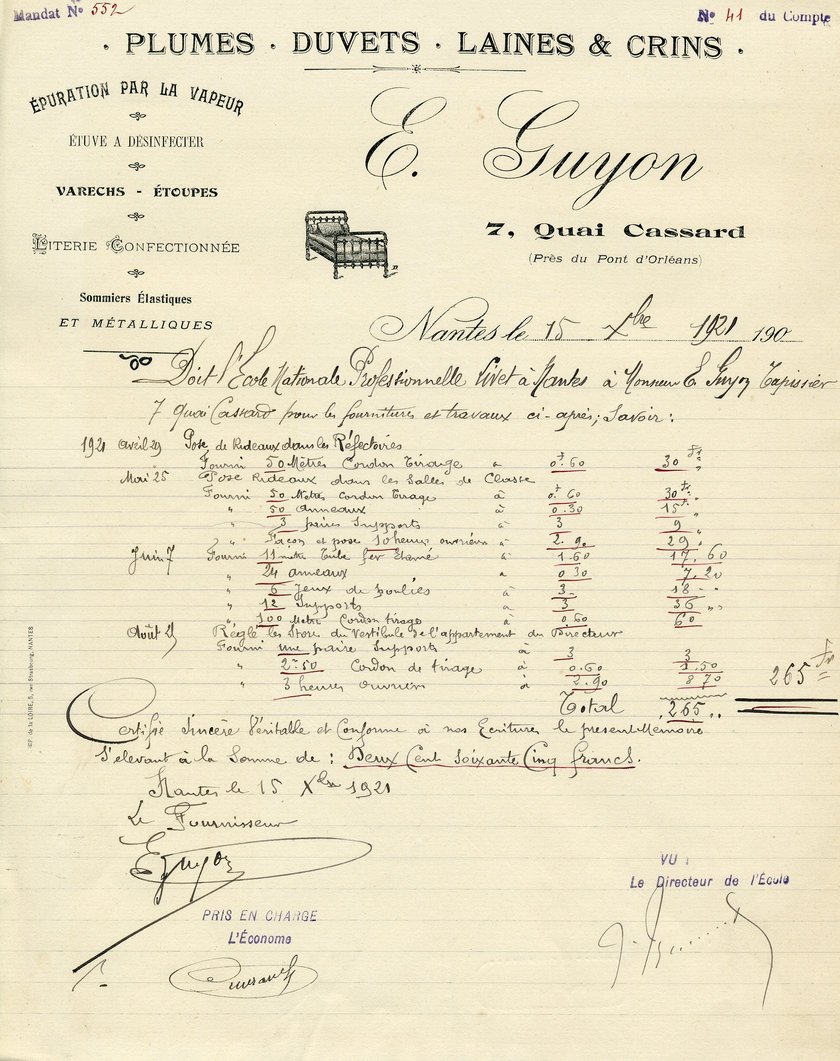 Mandat Nº 552
Nº 41 du Compte
· PLUMES · DUVETS · LAINES & CRINS ·
ÉPURATION PAR LA VAPEUR
ÉTUVE A DÉSINFECTER
VARECHS - ÉTOUPES
LITERIE CONFECTIONNÉE
Sommiers Élastiques
ET MÉTALLIQUES
E. Guyon
7, Quai Cassard
(Près du Pont d'Orléans)
Nantes le 15 Xbre 1921 190
Doit l'École Nationale Professionnelle Livet à Nantes à Monsieur E. Guyon Tapissier
7 Quai Cassard pour les fournitures et travaux ci-après; Savoir:
1921 Avril 29 Pose de Rideaux dans les Réfectoires
Fourni 50 Mètres Cordon Tirage à 0f.60 30 fr "
Mai 25 Pose Rideaux dans les Salles de Classe
Fourni 50 Mètres cordon Tirage à 0f.60 30 fr "
" 50 anneaux à 0.30 15 fr "
" 3 paires Supports à 3 9 "
" Façon et pose 10 heures ouvrières à 2.90 29 "
Juin 7 Fourni 11 mètres Tube fer Etamé à 1.60 17.60
" 24 anneaux à 0.30 7.20
" 6 Jeux de Poulies à 3 18 "
" 12 Supports à 3 36 "
" 100 Mètres Cordon tirage à 0.60 60
Août 29 Réglé les Stores du Vestibule de l'appartement du Directeur
Fourni une paire Supports à 3 3
" 2m50 Cordon de tirage à 0.60 1.50
" 3 heures ouvriers à 2.90 8.70
Total 265 " 265 Fr
Certifié Sincère Véritable et Conforme à nos Ecritures le présent Mémoire
S'élevant à la Somme de : Deux Cent Soixante Cinq francs.
Nantes le 15 Xbre 1921
Le Fournisseur
E Guyon
PRIS EN CHARGE
L'Économe
VU :
Le Directeur de l'École
IMP. de la LOIRE, 5, rue Strasbourg, NANTES